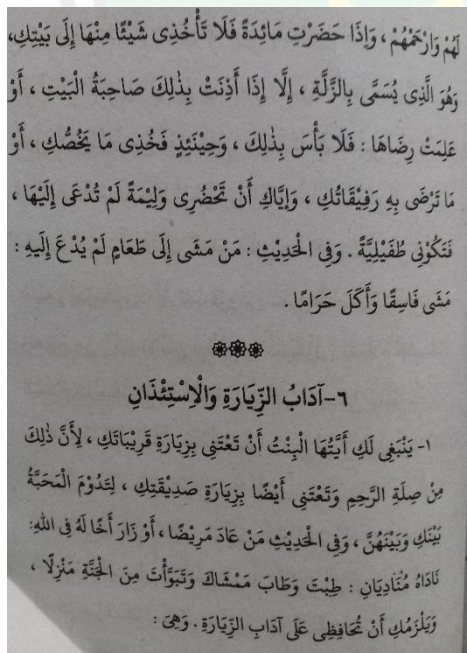 لَهُمْ وَارْحَمْهُمْ ، وَإِذَا حَضَرْتِ مَائِدَةً فَلَا تَأْخُذِى شَيْئًا مِنْهَا إِلَى بَيْتِكِ،
وَهُوَ الَّذِى يُسَمَّى بِالزَّلَّةِ ، إِلَّا إِذَا أَذِنَتْ بِذٰلِكَ صَاحِبَةُ الْبَيْتِ ، أَوْ
عَلِمَتْ رِضَاهَا : فَلَا بَأْسَ بِذٰلِكَ ، وَحِيْنَئِذٍ فَخُذِى مَا يَخُصُّكِ ، أَوْ
مَا تَرْضَى بِهِ رَفِيْقَاتُكِ ، وَإِيَّاكِ أَنْ تَحْضُرِى وَلِيْمَةً لَمْ تُدْعَى إِلَيْهَا ،
فَتَكُوْنِى طُفَيْلِيَّةً . وَفِى الْحَدِيْثِ : مَنْ مَشَى إِلَى طَعَامٍ لَمْ يُدْعَ إِلَيهِ :
مَشَى فَاسِقًا وَأَكَلَ حَرَامًا .
٦- آدَابُ الزِّيَارَةِ وَالْاِسْتِئْذَانِ
١- يَنْبَغِى لَكِ أَيَّتُهَا الْبِنْتُ أَنْ تَعْتَنِى بِزِيَارَةِ قَرِيْبَاتِكِ ، لِأَنَّ ذٰلِكَ
مِنْ صِلَةِ الرَّحِمِ وَتَعْتَنِى أَيْضًا بِزِيَارَةِ صَدِيْقَتِكِ ، لِتَدُوْمَ الْمَحَبَّةُ
بَيْنَكِ وَبَيْنَهُنَّ ، وَفِى الْحَدِيْثِ مَنْ عَادَ مَرِيْضًا ، أَوْ زَارَ أَخًا لَهُ فِى اللهِ:
نَادَاهُ مُنَادِيَانِ : طِبْتَ وَطَابَ مَمْشَاكَ وَتَبَوَّأْتَ مِنَ الْجَنَّةِ مَنْزِلًا ،
وَيَلْزَمُكِ أَنْ تُحَافِظِى عَلَى آدَابِ الزِّيَارَةِ . وَهِىَ :